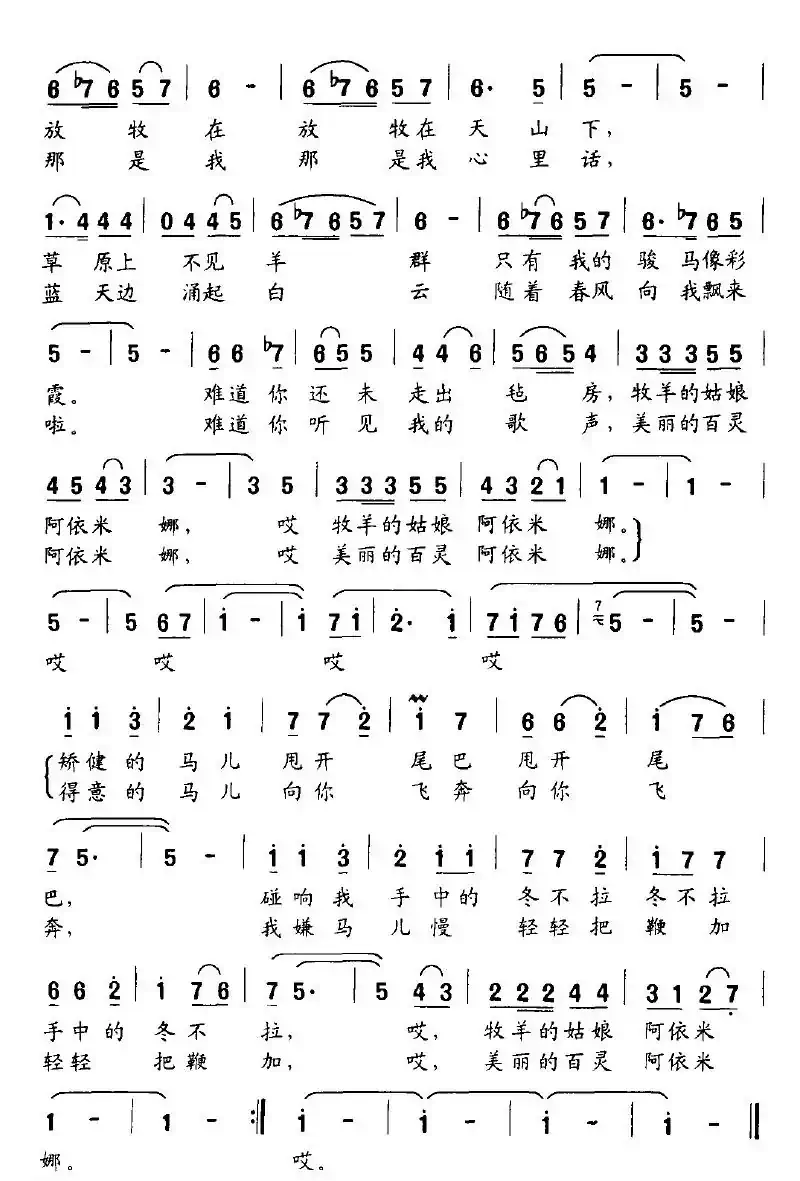 6 ♭7 6 5 7 | 6 - | 6 ♭7 6 5 7 | 6· 5 | 5 - | 5 - |
放 牧 在 放 牧在 天 山 下,
那 是 我 那 是我 心 里 话,
1· 4 4 4 | 0 4 4 5 | 6 ♭7 6 5 7 | 6 - | 6 ♭7 6 5 7 | 6· ♭7 6 5 |
草 原上 不见 羊 群 只有 我的 骏 马像彩
蓝 天边 涌起 白 云 随着 春风 向 我飘来
5 - | 5 - | 6 6 ♭7 | 6 5 5 | 4 4 6 | 5 6 5 4 | 3 3 3 5 5 |
霞。 难道你 还 未 走出 毡 房,牧羊的姑娘
啦。 难道你 听 见 我的 歌 声,美丽的百灵
4 5 4 3 | 3 - | 3 5 | 3 3 3 5 5 | 4 3 2 1 | 1 - | 1 - |
阿依米 娜, 哎 牧羊的姑娘 阿依米 娜。
阿依米 娜, 哎 美丽的百灵 阿依米 娜。
5 - | 5 6 7 | i - | i 7 i | 2̇· i | 7 i 7 6 | 7 5 - | 5 - |
哎 哎 哎 哎
i i 3̇ | 2̇ i | 7 7 2̇ | i 7 | 6 6 2̇ | i 7 6 |
矫健的 马儿 甩开 尾巴 甩开 尾
得意的 马儿 向你 飞奔 向你 飞
7 5· | 5 - | i i 3̇ | 2̇ i i | 7 7 2̇ | i 7 7 |
巴, 碰响我 手中的 冬不拉 冬不拉
奔, 我嫌马 儿慢 轻轻把 鞭 加
6 6 2̇ | i 7 6 | 7 5· | 5 4 3 | 2 2 2 4 4 | 3 1 2 7̣ |
手中的 冬不 拉, 哎, 牧羊的姑娘 阿依米
轻轻 把鞭 加, 哎, 美丽的百灵 阿依米
1 - | 1 - :‖ i - | i - | i - | i - ‖
娜。 哎。